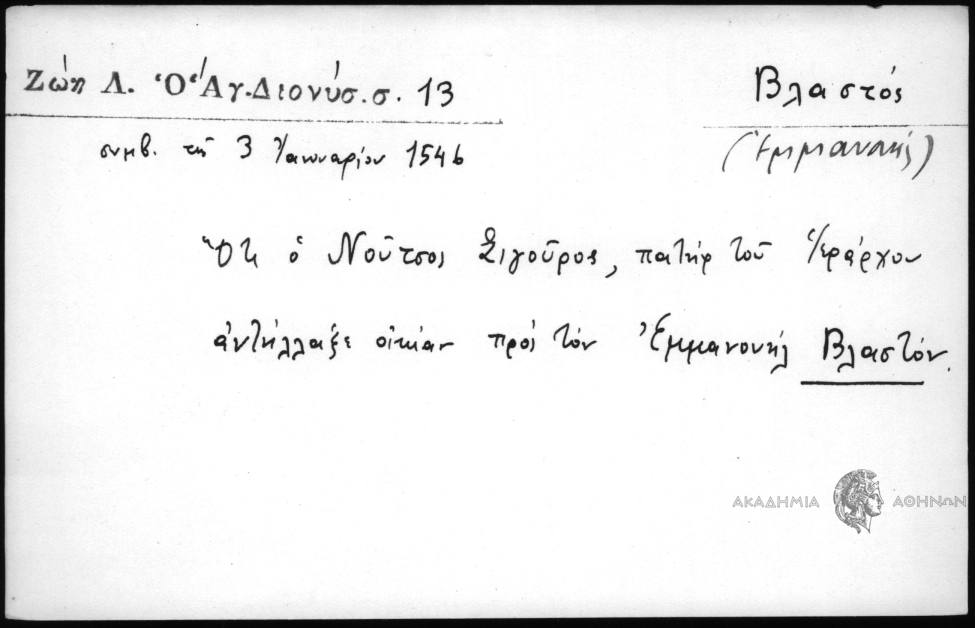 Ζώη Λ. Ὁ Ἅγ. Διονύσ. σ. 13
Βλαστός
συμβ. τῆς 3 Ἰαννουαρίου 1546
(Ἐμμανουήλ)
Ὅτι ὁ Νοῦτσος Σιγοῦρος, πατὴρ τοῦ Ἱεράρχου
ἀντήλλαξε οἰκίαν πρὸς τὸν Ἐμμανουήλ Βλαστόν.
ΑΚΑΔΗΜΙΑ ΑΘΗΝΩΝ